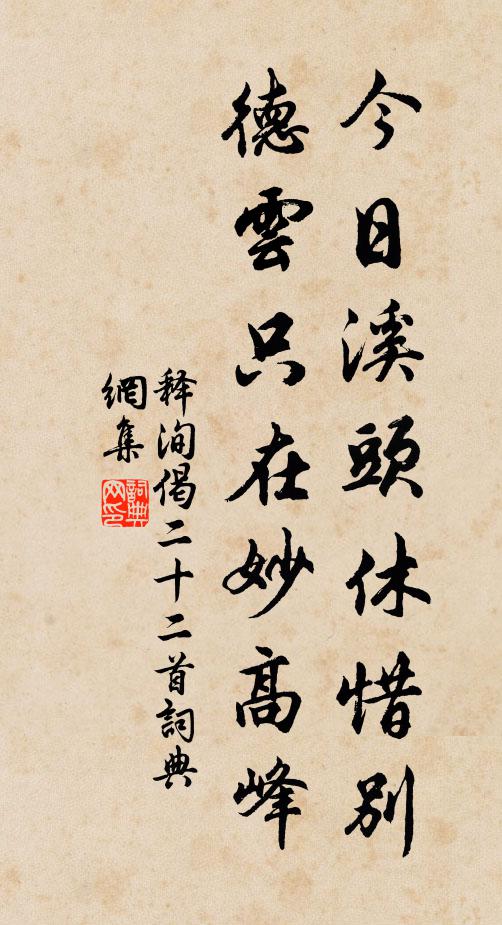 今日溪頭休惜別
德雲只在妙高峰
释洵偈二十二首詞典
網集
詞典
网印